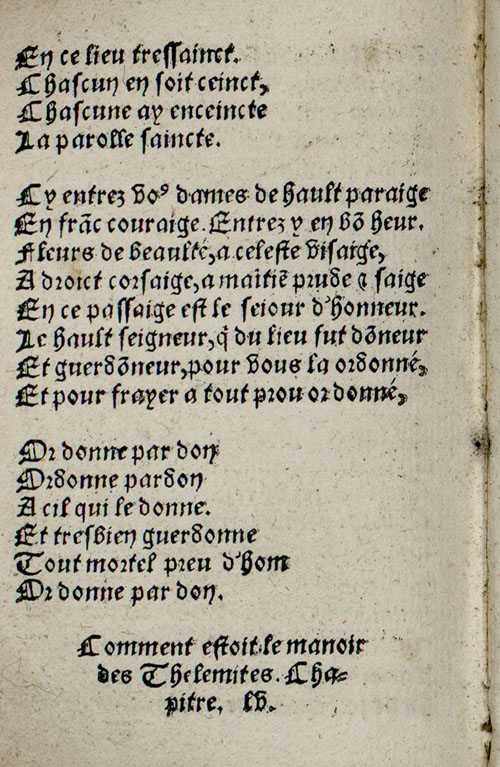 En ce lieu tressainct.
Chascun en soit ceinct,
Chascune ay enceincte
La parolle saincte.

Cy entrez voꝰ dames de hault paraige
En frāc couraige. Entrez y en bō heur.
Fleurs de beaulté, a celeste visaige,
A droict corsaige, a maĩtiẽ prude ⁊ saige
En ce passaige est le seiour d'honneur.
Le hault seigneur, q̃ du lieu fut dõneur
Et guerdõneur, pour vous la ordonné,
Et pour frayer a tout prou or donné,

Or donne par don
Ordonne pardon
A cil qui le donne.
Et tresbien guerdonne
Tout mortel preu d'hom
Or donne par don.

Comment estoit le manoir
des Thelemites. Cha-
pitre. lv.